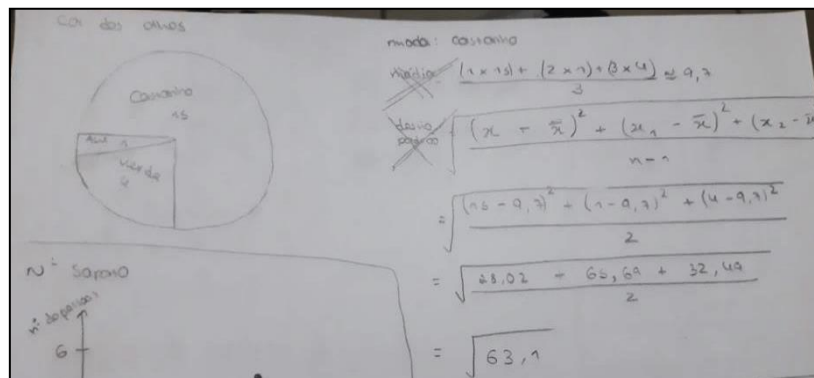 Cor dos olhos
Castanho
15
Azul 1
Verde
4
moda: castanho
média (1 x 15) + (2 x 1) + (3 x 4) ≈ 9,7
3
desvio padrão √ (x - x̄)² + (x₁ - x̄)² + (x₂ - x̄
n - 1
= √ (15 - 9,7)² + (1 - 9,7)² + (4 - 9,7)²
2
= √ 28,02 + 65,69 + 32,49
2
= √ 63,1
Nº Sapato
nº de pessoas
6